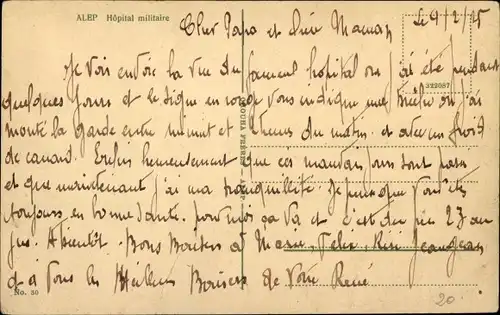 ALEP Hôpital militaire
Cher Papa et chère Maman Le 9/2/25
Je vous envoie la vue du fameux hopital ou j'ai été pendant
322087
quelques jours et le signe en rouge vous indique une où j'ai
monté la garde entre minuit et heures du matin et avec un froid
de canard. Enfin heureusement que ces mauvais jours sont passés
et que maintenant j'ai ma tranquillité. Je pense que vous êtes
toujours en bonne santé. pour moi ça va et c'est du 27 au
jus. A bientôt. Bons Baisers à Félix,
et à vous les Meilleurs Baisers de Votre René
FRÈRES
No. 30
20